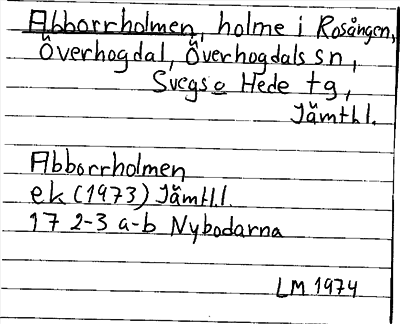 Abborrholmen, holme i Rosången,
Överhogdal, Överhogdals sn,
Svegs o Hede tg,
Jämtl.
Abborrholmen
ek (1973) Jämtl.
17 2-3 a-b Nybodarna
LM 1974